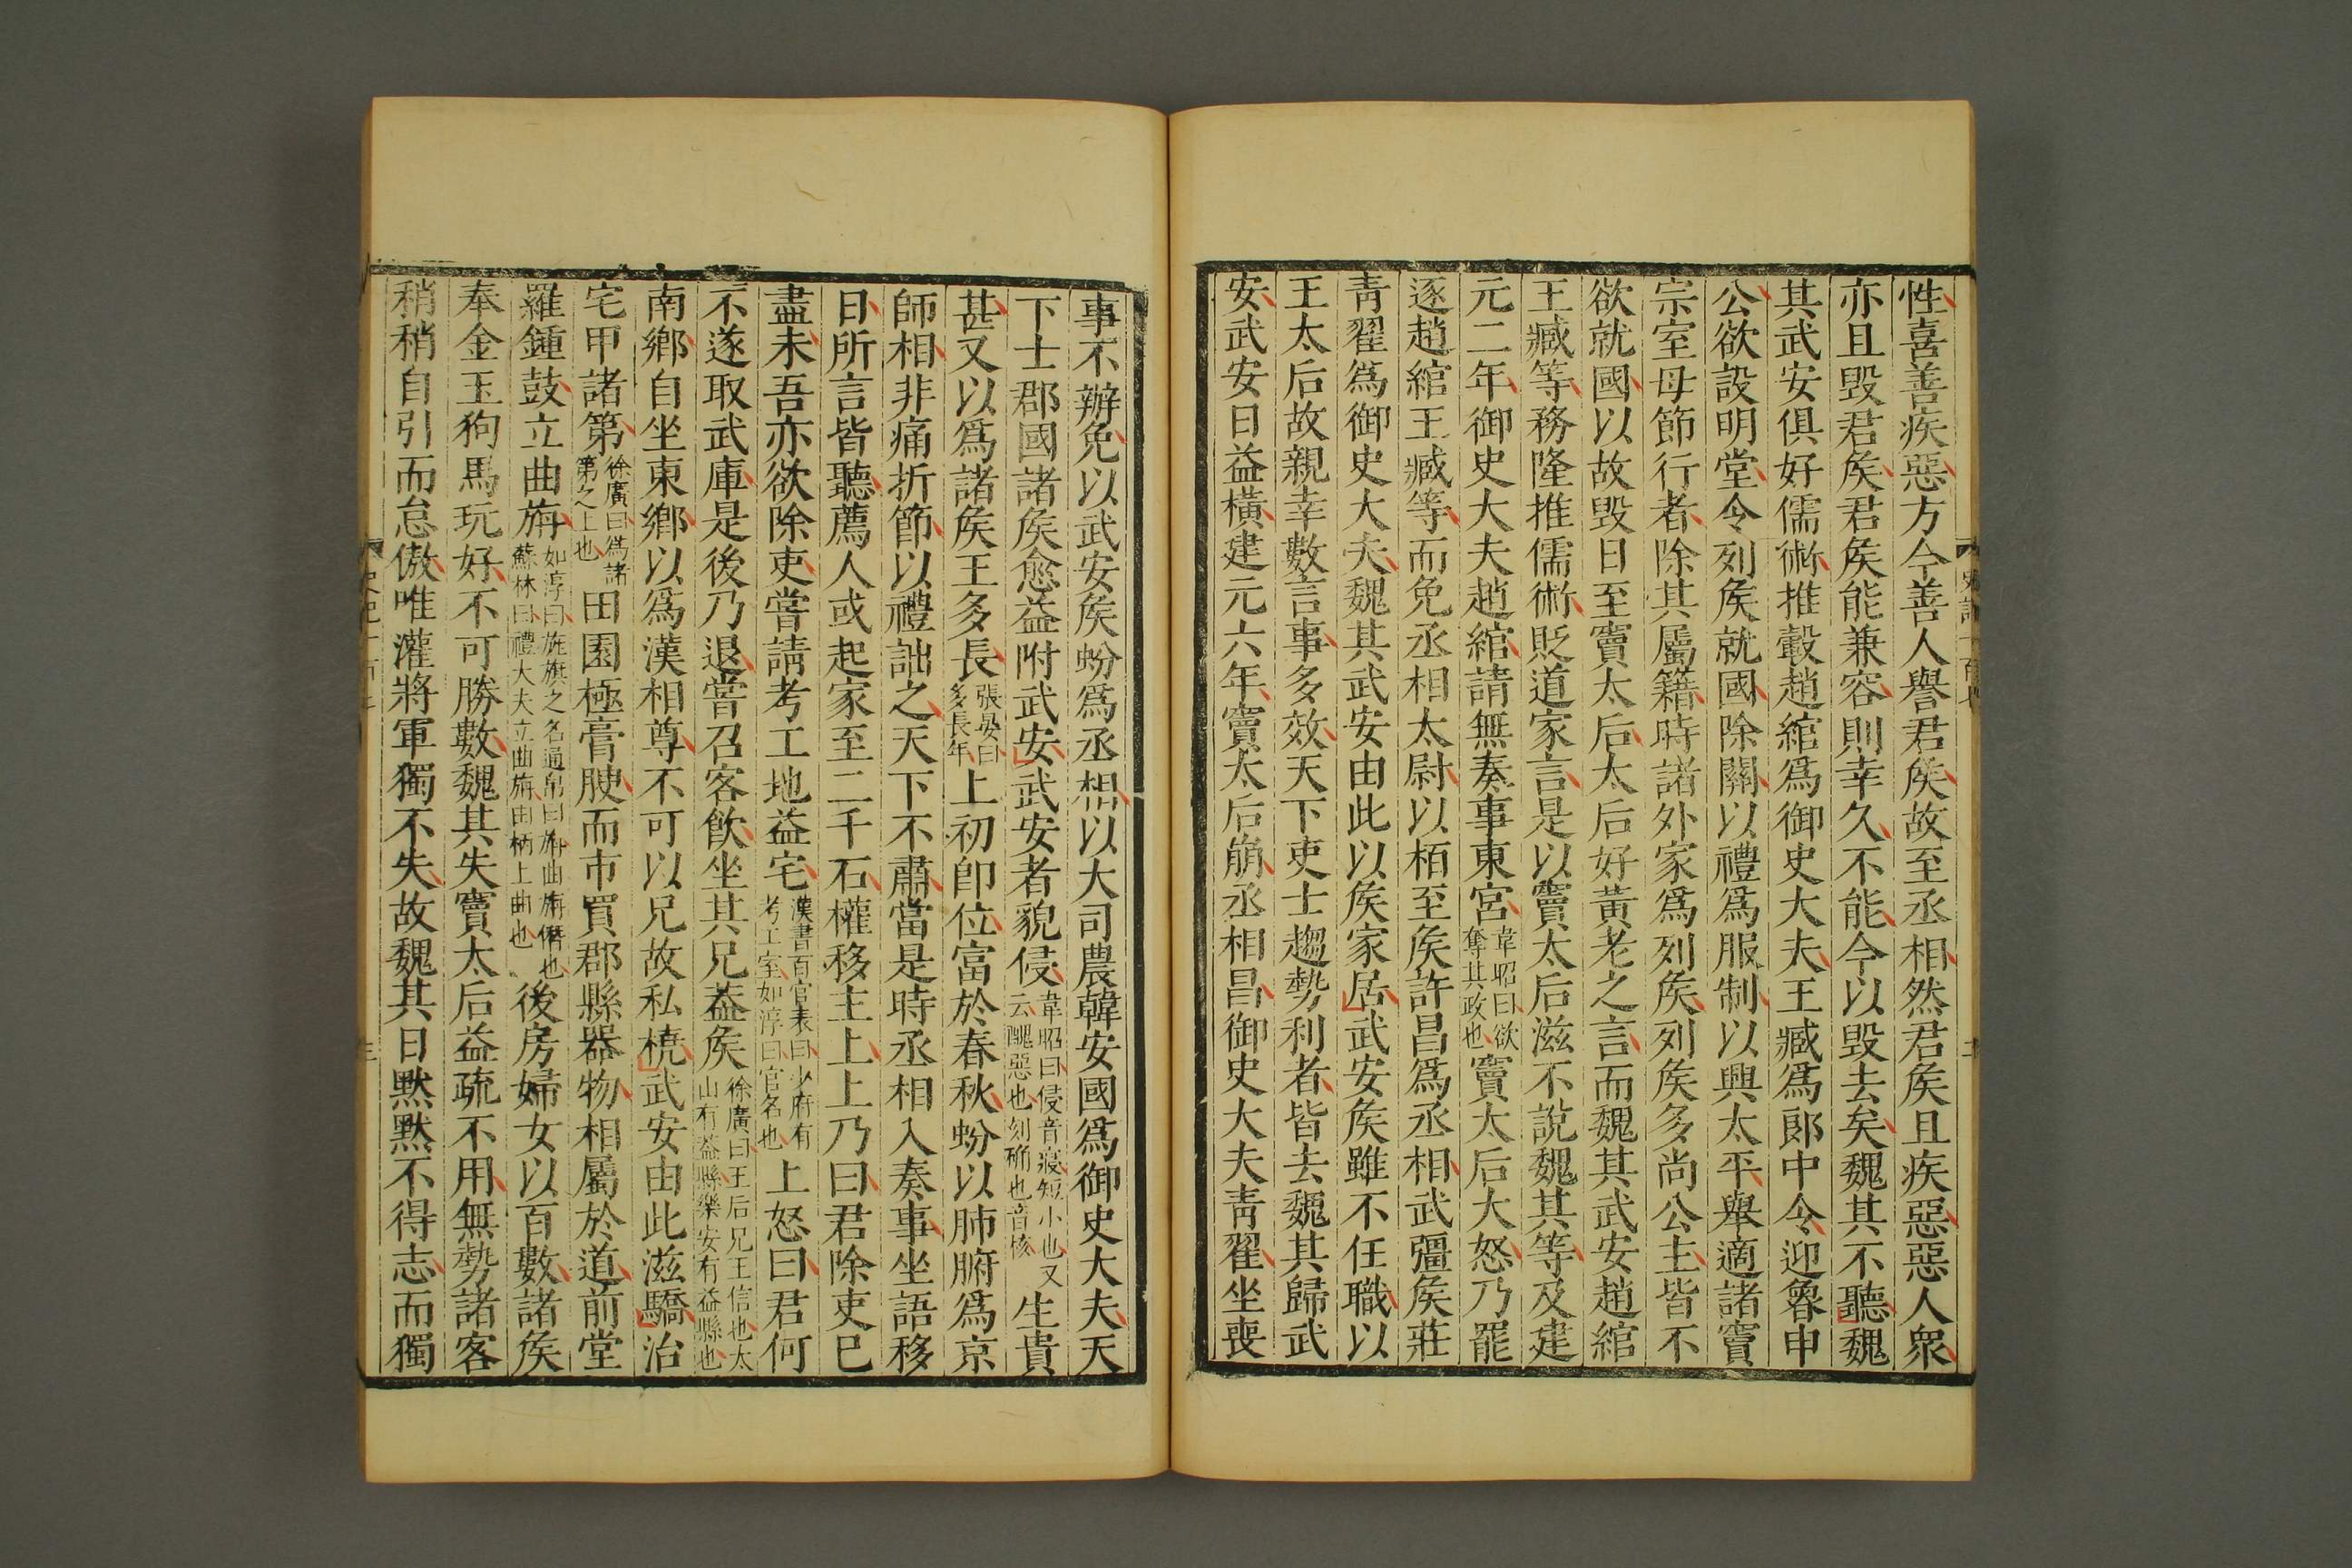 性喜善疾惡方今善人譽君矦故至丞相然君矦且疾惡惡人衆
亦且毀君矦君矦能兼容則幸久不能今以毀去矣魏其不聽魏
其武安俱好儒術推轂趙綰爲御史大夫王臧爲郞中令迎魯申
公欲設明堂令列矦就國除關以禮爲服制以興太平舉適諸竇
宗室毋節行者除其屬籍時諸外家爲列矦列矦多尚公主皆不
欲就國以故毀日至竇太后太后好黃老之言而魏其武安趙綰
王臧等務隆推儒術貶道家言是以竇太后滋不說魏其等及建
元二年御史大夫趙綰請無奏事東宮韋昭曰欲奪其政也竇太后大怒乃罷
逐趙綰王臧等而免丞相太尉以栢至矦許昌爲丞相武彊矦莊
靑翟爲御史大夫魏其武安由此以矦家居武安矦雖不任職以
王太后故親幸數言事多效天下吏士趨勢利者皆去魏其歸武
安武安日益橫建元六年竇太后崩丞相昌御史大夫靑翟坐喪
事不辦免以武安矦蚡爲丞相以大司農韓安國爲御史大夫天
下士郡國諸矦愈益附武安武安者貌侵韋昭曰侵音寢短小也又云醜惡也刻确也音核生貴
甚又以爲諸矦王多長張晏曰多長年上初卽位富於春秋蚡以肺腑爲京
師相非痛折節以禮詘之天下不肅當是時丞相入奏事坐語移
日所言皆聽薦人或起家至二千石權移主上上乃曰君除吏已
盡未吾亦欲除吏嘗請考工地益宅漢書百官表曰少府有考工室如淳曰官名也上怒曰君何
不遂取武庫是後乃退嘗召客飮坐其兄蓋矦徐廣曰王后兄王信也太山有蓋縣樂安有益縣也
南鄕自坐東鄕以爲漢相尊不可以兄故私橈武安由此滋驕治
宅甲諸第徐廣曰爲諸第之上也田園極膏腴而市買郡縣器物相屬於道前堂
羅鍾鼓立曲旃如淳曰旌旗之名通帛曰旃曲旃僭也蘇林曰禮大夫立曲旃曲柄上曲也後房婦女以百數諸矦
奉金玉狗馬玩好不可勝數魏其失竇太后益疏不用無勢諸客
稍稍自引而怠傲唯灌將軍獨不失故魏其日默默不得志而獨